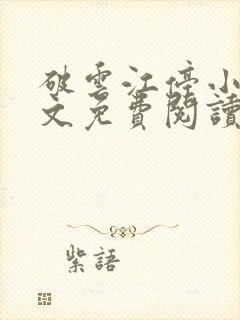 破雲江停小
文免費閱讀
紫語